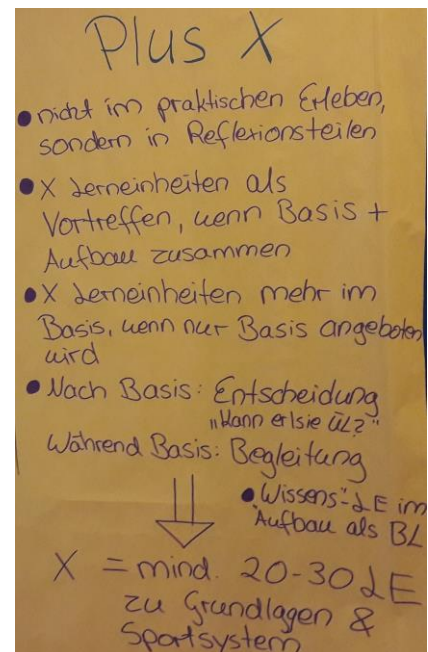 Plus X
• nicht im praktischen Erleben,
sondern in Reflexionsteilen
• X Lerneinheiten als
Vortreffen, wenn Basis +
Aufbau zusammen
• X Lerneinheiten mehr im
Basis, wenn nur Basis angeboten
wird
• Nach Basis: Entscheidung
"kann er/sie ÜL?"
Während Basis: Begleitung
• "Wissens"-LE im
Aufbau als BL
X = mind. 20-30 LE
zu Grundlagen &
Sportsystem